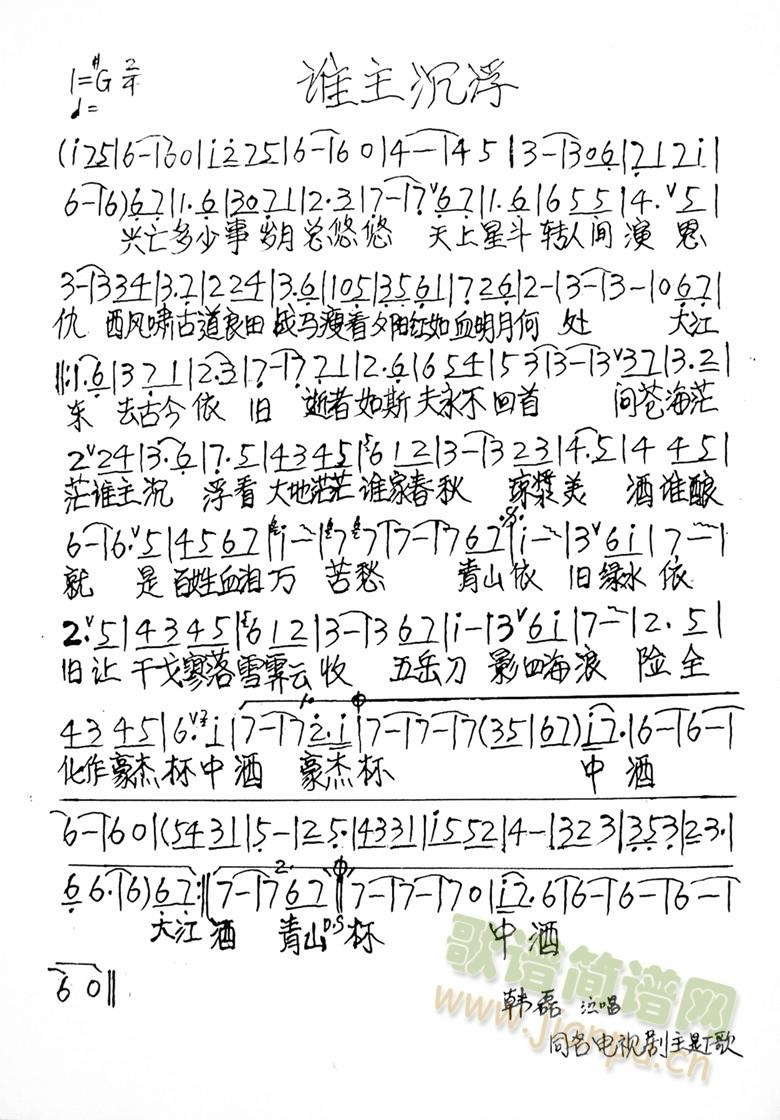 谁主沉浮
1=#G 2/4
♩=
(i 2 7 5|6-|6 0|i 2 7 5|6-|6 0|4-|4 5|3-|3 0 6|7 1 7 i|
6-|6) 6 7|1. 6|3 0 7 1|2. 3|7-|7 6 7|1. 6|6 5 5|4. 5|
兴亡多少事 岁月总悠悠 天上星斗转人间 演 恩
3-|3 3 4|3. 7|2 2 4|3. 6|1 0 5|3 5 6 1|7 2 6|2-|3-|3-|0 6 7|
仇 西风啸古道良田 战马瘦看夕阳红如血明月何 处 大江
‖:1. 6|3 7 1|2. 3|7-|7 7 1|2. 6|6 5 4|5 3|3-|3 3 7|3. 2|
东 去古今依 旧 逝者如斯夫永不回首 问苍海茫
2 2 4|3. 6|7. 5|4 3 4 5|6 1 2|3-|3 2 3|4. 5|4 4 5|
茫谁主沉 浮看大地茫茫谁家春秋 琼浆美 酒谁酿
6-|6. 5|4 5 6 7|i-|7 7|7-|7 6 7|i-|3 6 i|7-|
就 是百姓血泪万 苦愁 青山依 旧绿水 依
2. 5|4 3 4 5|6 1 2|3-|3 6 7|i-|3 6 i|7-|2. 5|
旧让 干戈寥落雪霁云收 五岳刀 影四海浪 险 全
4 3 4 5|6. i|7-|7 2. i|7-|7-|7 (3 5|6 7) i 7.|6-|6-|
化作豪杰杯中酒 豪杰杯 中 酒
6-|6 0|(5 4 3 1|5-|2 5.|4 3 3 1|i 5 5 2|4-|3 2 3|3 5 3|2 3.|
6 6.|6) 6 7:‖7-|7 6 7‖7-|7-|7 0|i 7. 6|6-|6-|6-|
大江 酒 青山 D.S 杯 中 酒
6 0‖
韩磊 泣唱
同名电视剧主题歌
歌谱简谱网
www.jianpu.cn